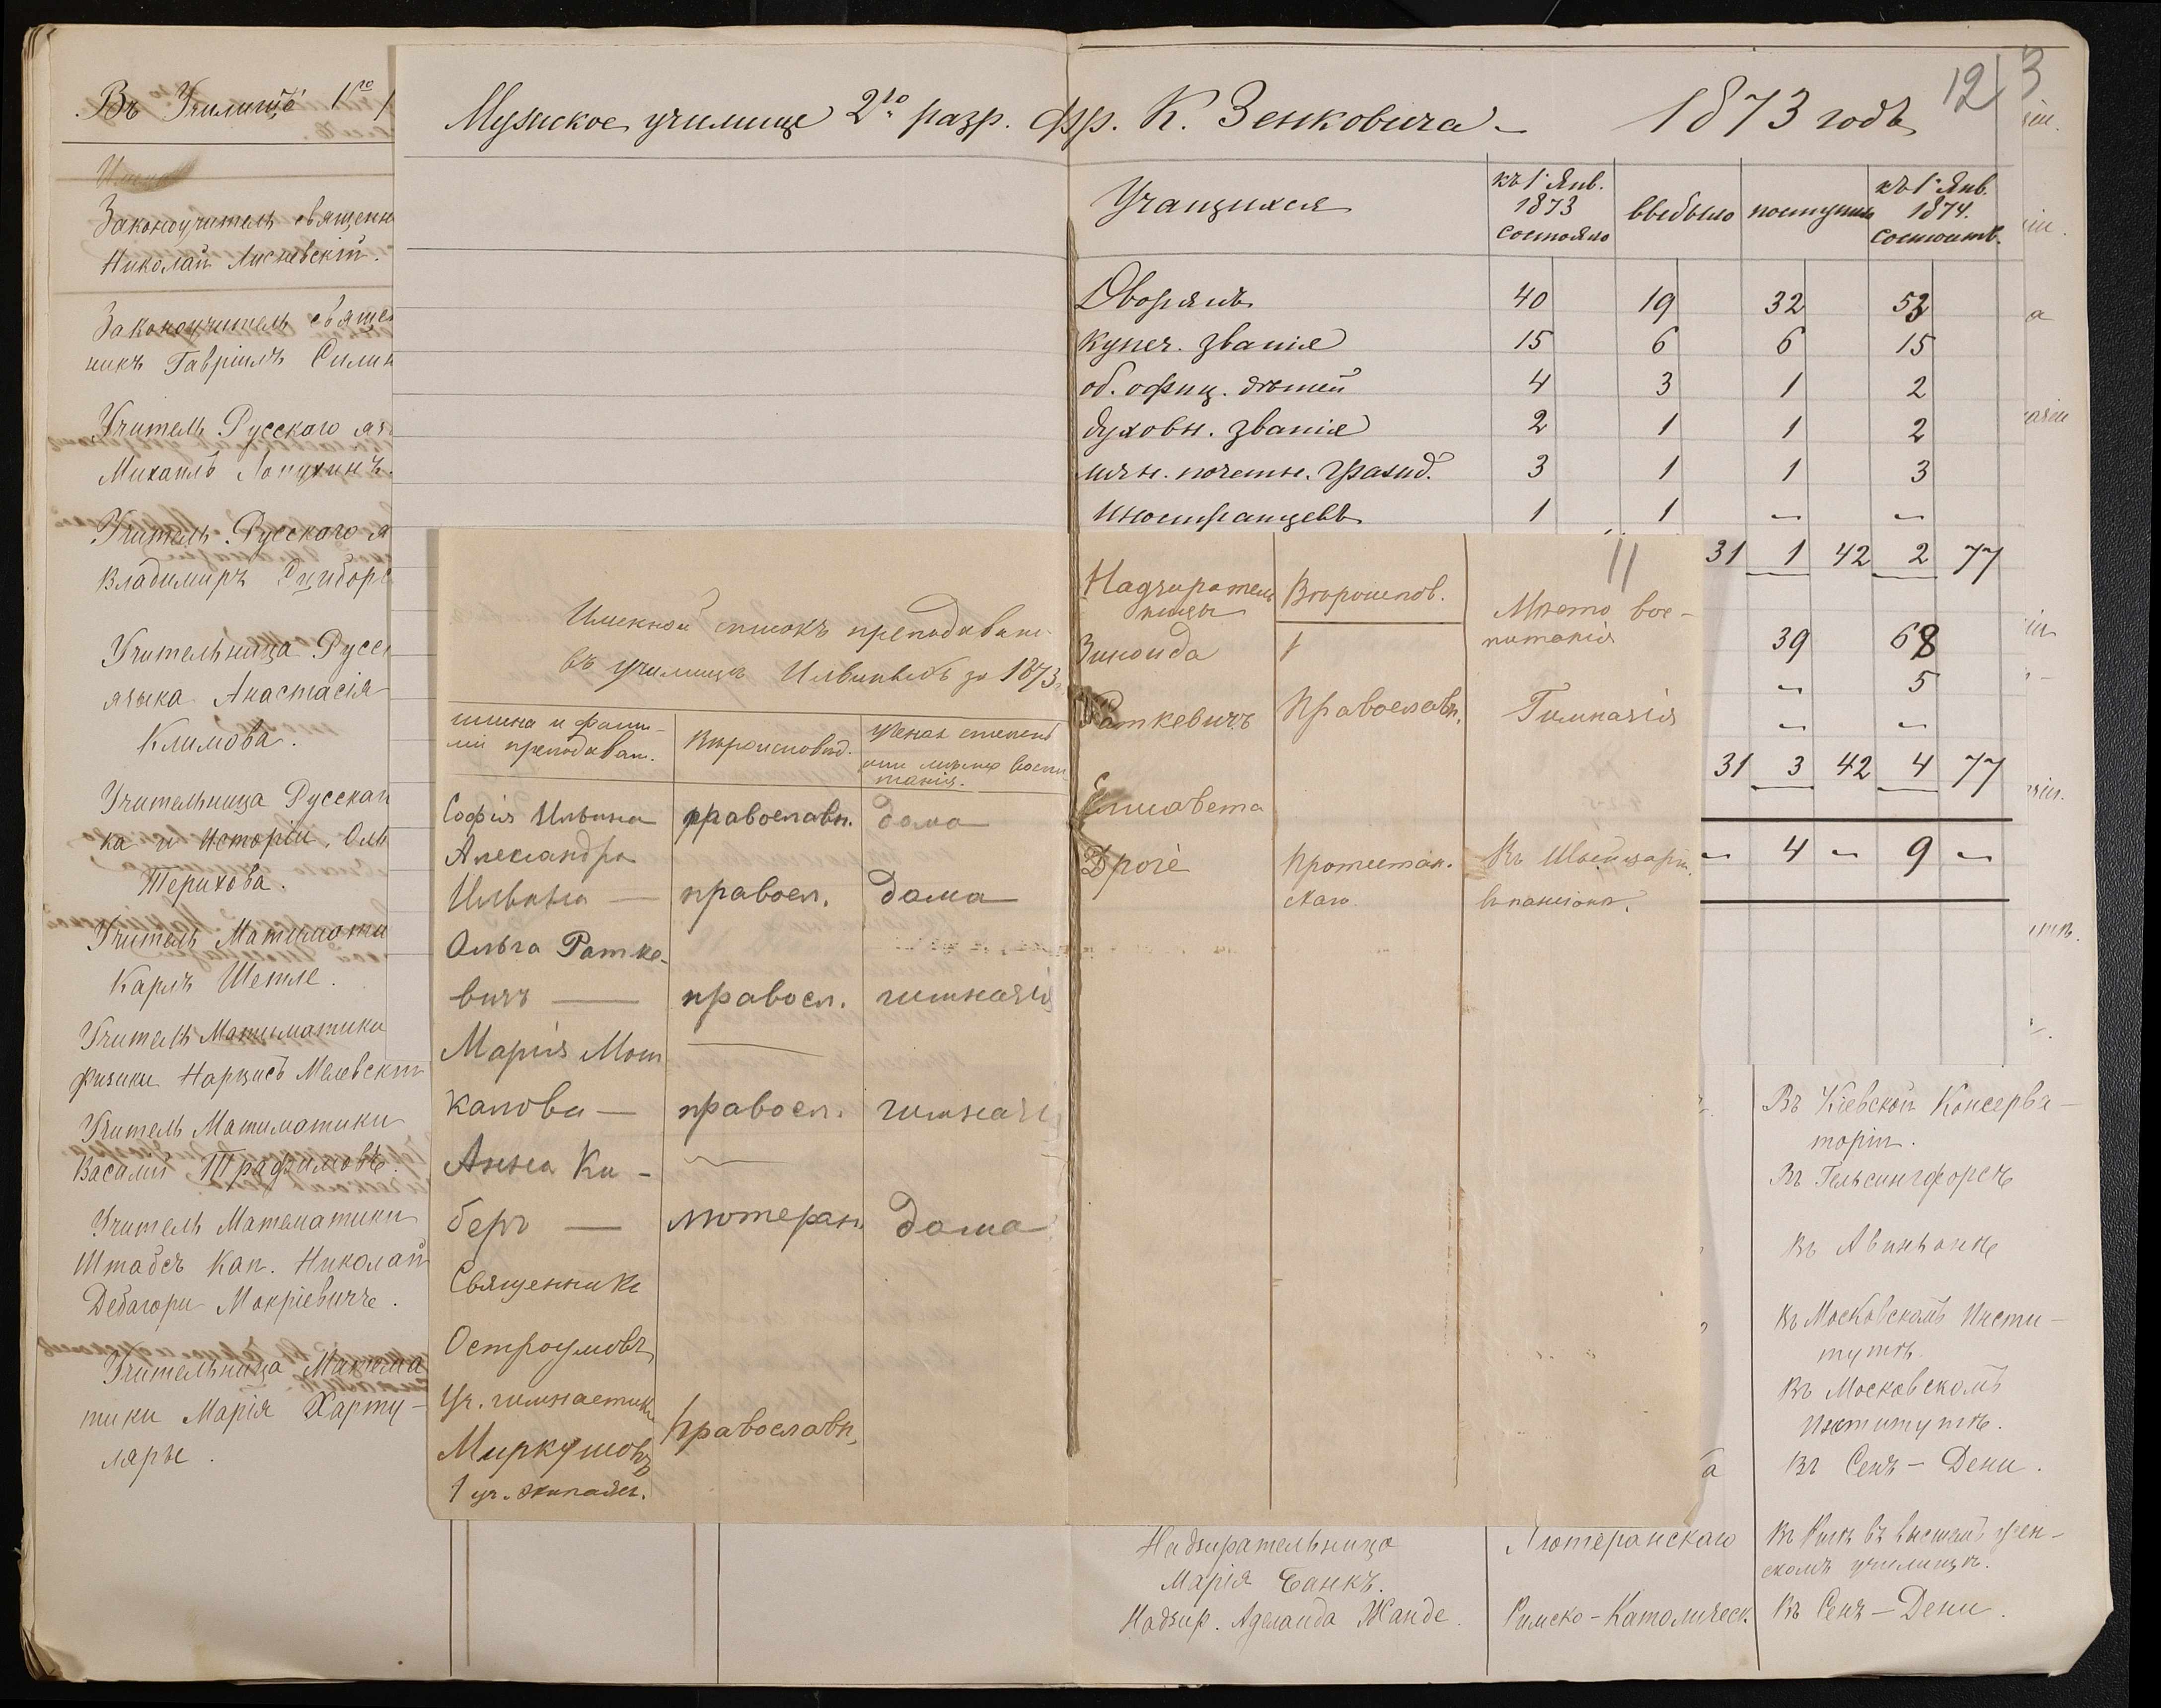 Въ Училище 1го
Законоучитель священ
Николай Лисневскій.
Законоучитель свяще
никъ Гавріилъ
Учитель Русскаго яз
Михаилъ Лопухинъ.
Учитель Русскаго я
Владимиръ Сциборс
Учительница Русск
языка Анастасія
Климова.
Учительница Русскаг
ка и Исторіи, Оль
Терихова.
Учитель Матимати
Карлъ Шетле.
Учитель Матиматики
физики Нарцисъ Малевскій
Учитель Матиматики
Василій Трафимовъ.
Учитель Математики
Штабсъ Кап. Николай
Дебагори Мокріевичъ.
Учительница Матима
тики Марія Харту-
ляры.
Мужское училище 2го разр. фр. К. Зенковича — 1873 годъ
12 3
Учащихся
къ 1 Янв. 1873 состояло
выбыло
поступило
къ 1 Янв. 1874. состоитъ
Дворянъ 40 19 32 53
купеч. званія 15 6 6 15
об. офиц. дѣтей 4 3 1 2
духовн. званія 2 1 1 2
личн. почетн. гражд. 3 1 1 3
иностранцевъ 1 1 — —
31 1 42 2 77
39 68
— 5
— —
31 3 42 4 77
— 4 — 9 —
Именной списокъ преподават.
въ училищѣ Ильиныхъ за 1873
имена и фами-
ліи преподават.
Вѣроисповѣд.
ученая степень
или мѣсто воспи
танія.
Софія Ильина православн. дома
Александра
Ильина — правосл. дома
Ольга Ратке-
вичъ — правосл. гимназія
Марія Мош
калова — правосл. гимназі
Анна Ки-
беръ — лютеран. дома
Священникъ
Остроумовъ
Уч. гимнастики
Миркушовъ православн.
11
Надзиратель
ницы
Вѣроисповѣд.
Мѣсто вос-
питанія
Зинаида
Раткевичъ Православн. Гимназія
Елисавета
Дроге Протестан. Въ Швейцаріи
скаго въ пансіонѣ.
Въ Кіевской Консерва-
торіи.
Въ Гельсингфорсѣ
Въ Авиньонѣ
Въ Московскомъ Инсти-
тутѣ.
Въ Московскомъ
Институтѣ.
Въ Сенъ-Дени.
Надзирательница Лютеранскаго Въ Ригѣ въ высшемъ жен-
Марія Банкъ. скомъ училищѣ.
Надзир. Аделаида Жанде. Римско-Католическ. Въ Сенъ-Дени.